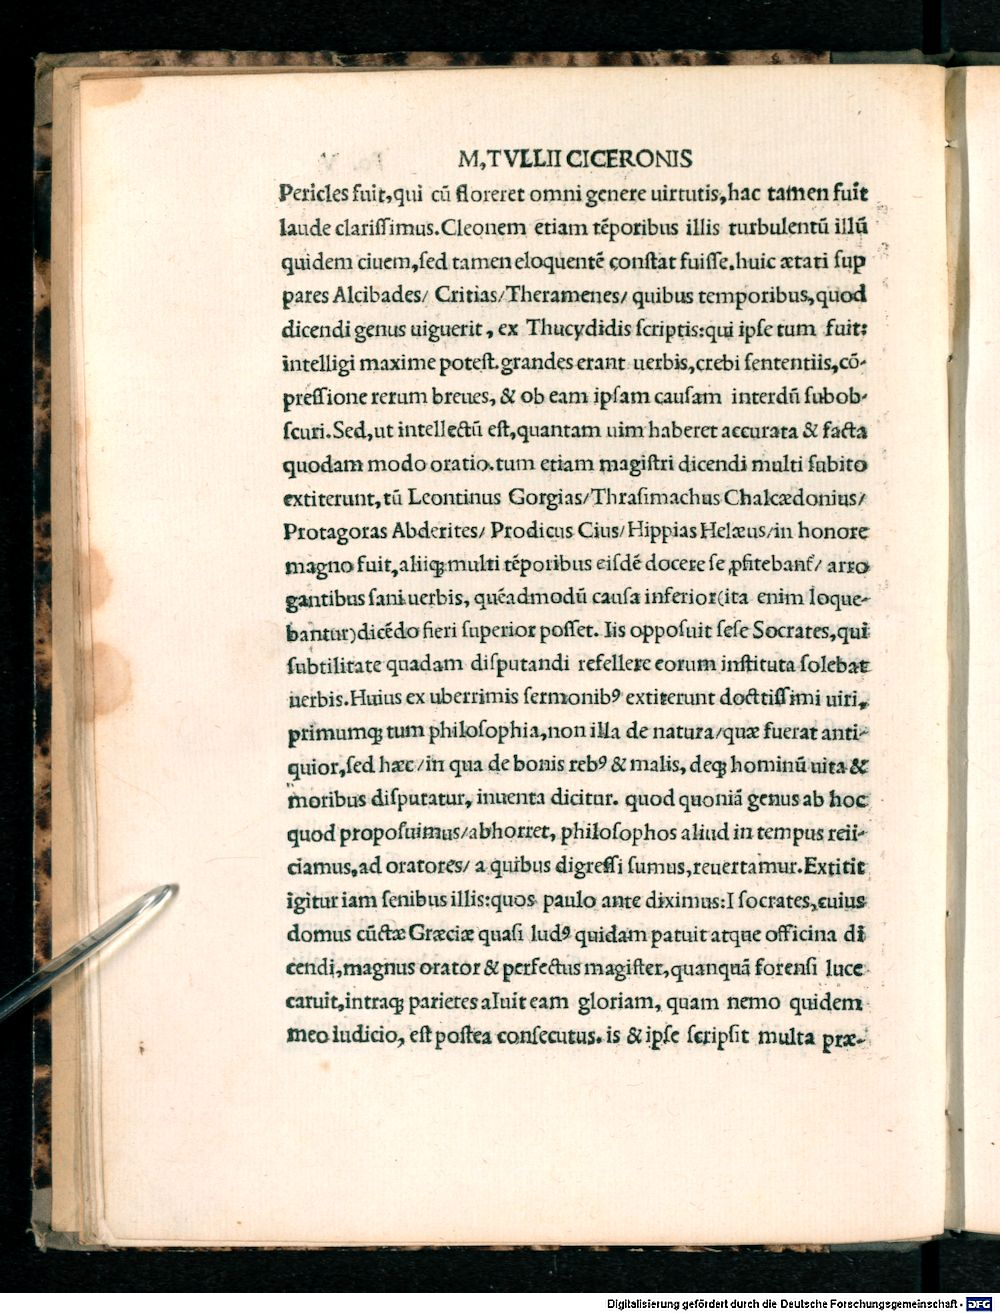 M,TVLLII CICERONIS
Pericles fuit,qui cū floreret omni genere uirtutis,hac tamen fuit
laude clarissimus.Cleonem etiam tēporibus illis turbulentū illū
quidem ciuem,sed tamen eloquentē constat fuisse.huic ætati sup
pares Alcibades/ Critias/Theramenes/ quibus temporibus,quod
dicendi genus uiguerit, ex Thucydidis scriptis:qui ipse tum fuit:
intelligi maxime potest.grandes erant uerbis,crebi sententiis,cō-
pressione rerum breues, & ob eam ipsam causam interdū subob-
scuri.Sed,ut intellectū est,quantam uim haberet accurata & facta
quodam modo oratio.tum etiam magistri dicendi multi subito
extiterunt,tū Leontinus Gorgias/Thrasimachus Chalcædonius/
Protagoras Abderites/ Prodicus Cius/Hippias Helæus/in honore
magno fuit,aliiqꝫ multi tēporibus eisdē docere se ꝓfitebant᷑/ arro
gantibus sani uerbis, quēadmodū causa inferior(ita enim loque-
bantur)dicēdo fieri superior posset. Iis opposuit sese Socrates,qui
subtilitate quadam disputandi refellere eorum instituta solebat
uerbis.Huius ex uberrimis sermonibꝰ extiterunt docttissimi uiri,
primumqꝫ tum philosophia,non illa de natura/quæ fuerat anti-
quior,sed hæc/in qua de bonis rebꝰ & malis, deqꝫ hominū uita &
moribus disputatur, inuenta dicitur. quod quoniā genus ab hoc
quod proposuimus/abhorret, philosophos aliud in tempus reii-
ciamus,ad oratores/ a quibus digressi sumus,reuertamur.Extitit
igitur iam senibus illis:quos paulo ante diximus:I socrates,cuius
domus cūctæ Græciæ quasi ludꝰ quidam patuit atque officina di
cendi,magnus orator & perfectus magister,quanquā forensi luce
caruit,intraqꝫ parietes aIuit eam gloriam, quam nemo quidem
meo Iudicio, est postea consecutus. is & ipse scripsit multa præ-
Digitalisierung gefördert durch die Deutsche Forschungsgemeinschaft - DFG